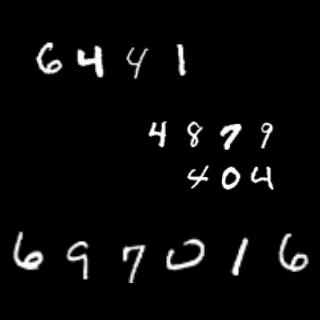 6441
4879
404
697016